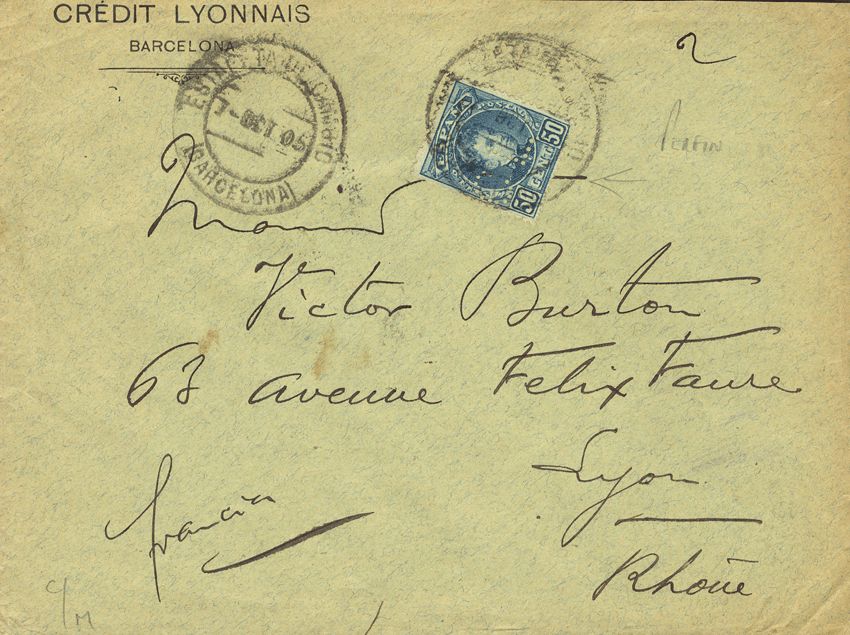 CRÉDIT LYONNAIS
BARCELONA
ESTAFETA DE CAMBIO
7-OCT 05
(BARCELONA)
2
ESPAÑA
50 CENTS 50
Perfin
Victor Burton
63 avenue Felix Faure
Lyon
Rhône
francia
C/M